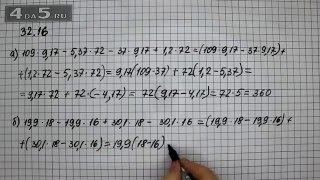 4BA5.RU
32.16
а) 109·9,17 − 5,37·72 − 37·9,17 + 1,2·72 = (109·9,17 − 37·9,17) +
+ (1,2·72 − 5,37·72) = 9,17(109 − 37) + 72(1,2 − 5,37) =
= 9,17·72 + 72·(−4,17) = 72(9,17 − 4,17) = 72·5 = 360
б) 19,9·18 − 19,9·16 + 30,1·18 − 30,1·16 = (19,9·18 − 19,9·16) +
+ (30,1·18 − 30,1·16) = 19,9(18 − 16)